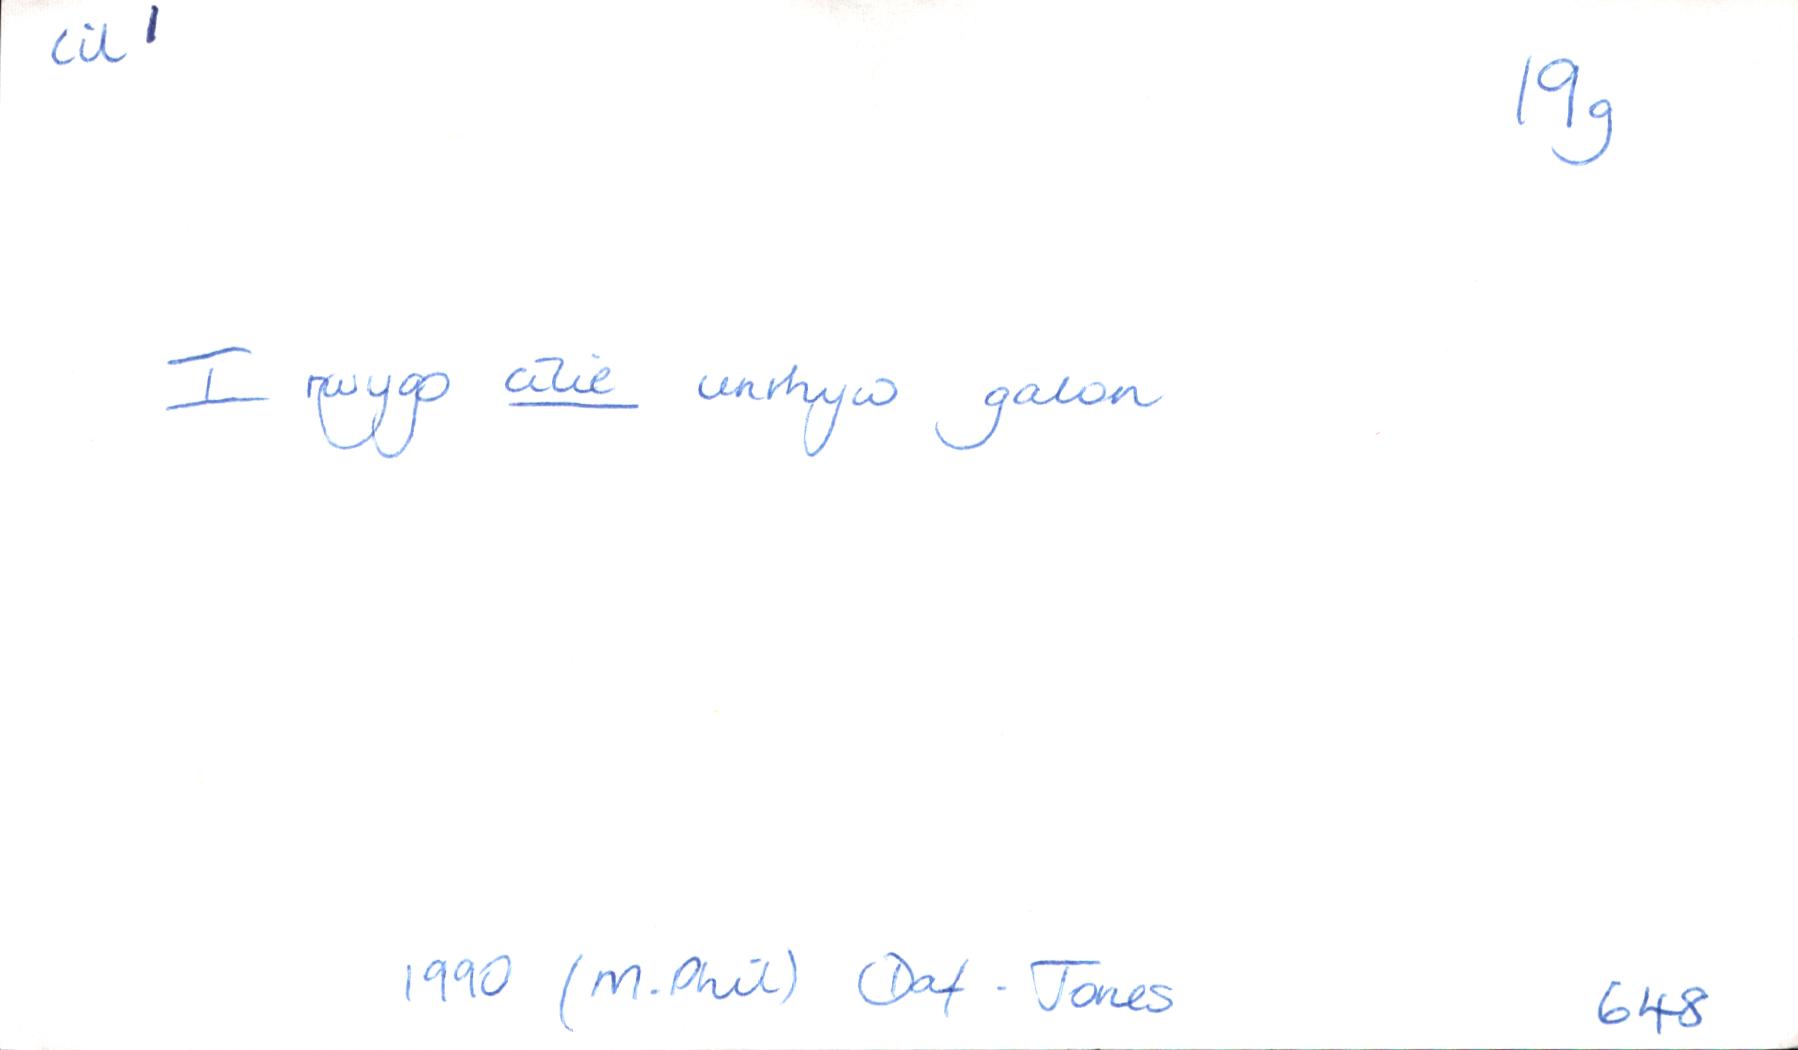 cil 1
19g
I rwygo cilie unrhyw galon
1990 (M.Phil) Daf. Jones
648